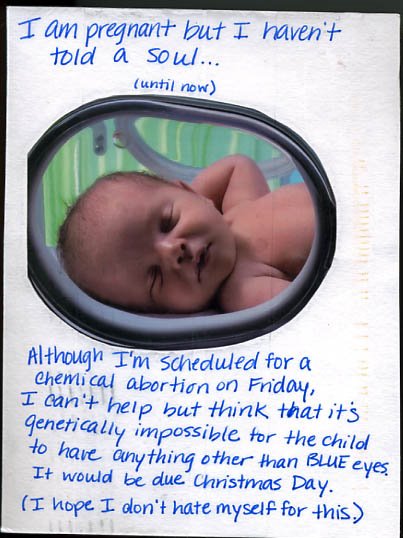 I am pregnant but I haven't
told a soul...
(until now)
Although I'm scheduled for a
chemical abortion on Friday,
I can't help but think that it's
genetically impossible for the child
to have anything other than BLUE eyes.
It would be due Christmas Day.
(I hope I don't hate myself for this.)